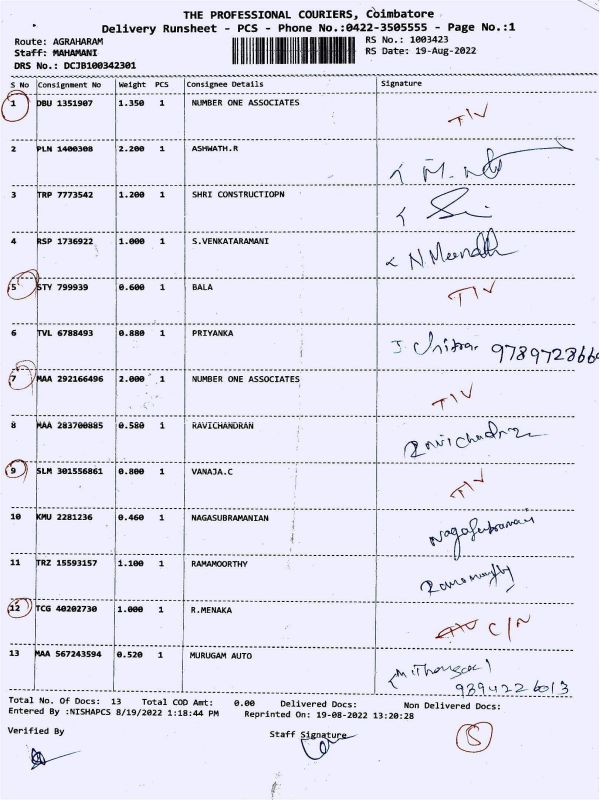 THE PROFESSIONAL COURIERS, Coimbatore
Delivery Runsheet - PCS - Phone No.:0422-3505555 - Page No.:1
Route: AGRAHARAM RS No.: 1003423
Staff: MAHAMANI RS Date: 19-Aug-2022
DRS No.: DCJB100342301
S No Consignment No Weight PCS Consignee Details Signature
1 DBU 1351907 1.350 1 NUMBER ONE ASSOCIATES TIV
2 PLN 1400308 2.200 1 ASHWATH.R
3 TRP 7773542 1.200 1 SHRI CONSTRUCTIOPN
4 RSP 1736922 1.000 1 S.VENKATARAMANI
5 STY 799939 0.600 1 BALA TIV
6 TVL 6788493 0.880 1 PRIYANKA
7 MAA 292166496 2.000 1 NUMBER ONE ASSOCIATES TIV
8 MAA 283700885 0.580 1 RAVICHANDRAN
9 SLM 301556861 0.800 1 VANAJA.C TIV
10 KMU 2281236 0.460 1 NAGASUBRAMANIAN
11 TRZ 15593157 1.100 1 RAMAMOORTHY
12 TCG 40202730 1.000 1 R.MENAKA C/N
13 MAA 567243594 0.520 1 MURUGAM AUTO
9394226013
Total No. Of Docs: 13 Total COD Amt: 0.00 Delivered Docs: Non Delivered Docs:
Entered By :NISHAPCS 8/19/2022 1:18:44 PM Reprinted On: 19-08-2022 13:20:28
Verified By Staff Signature 5